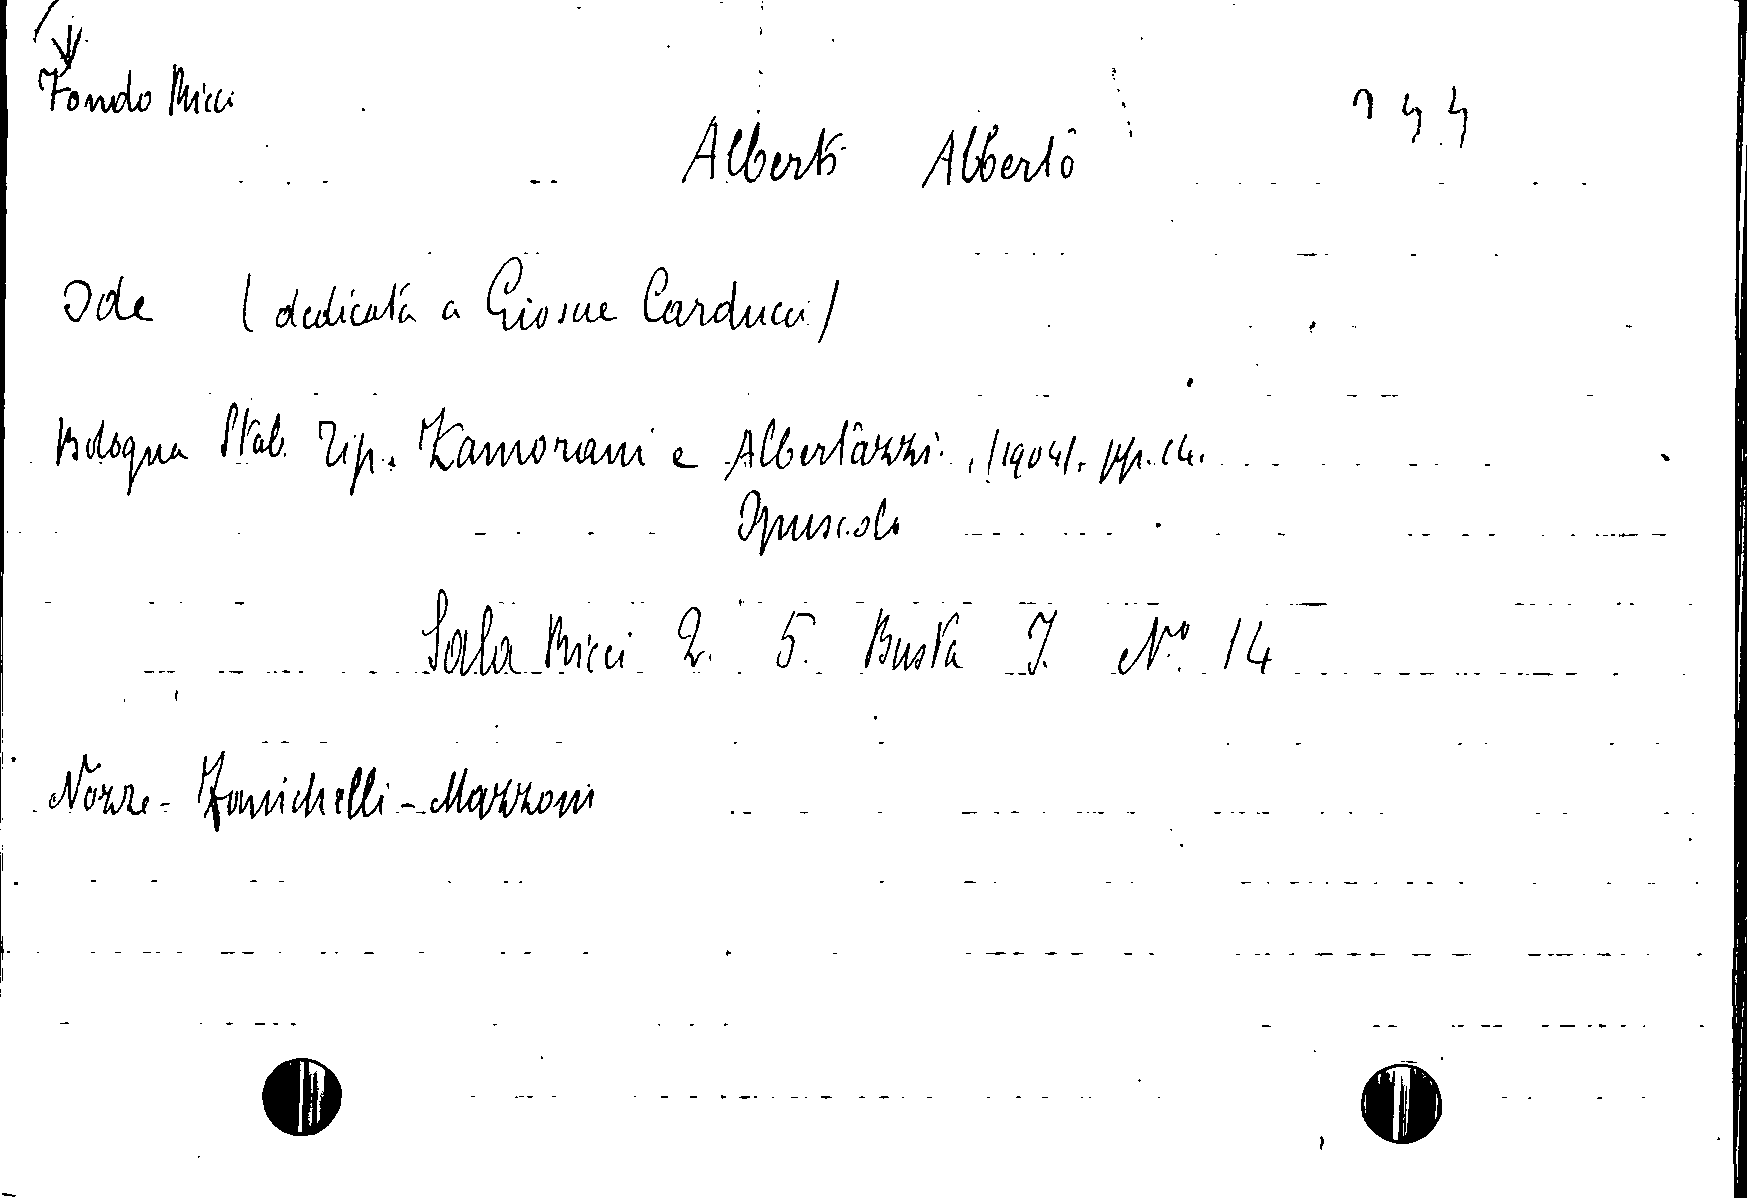 Fondo Ricci
144
Alberti Alberto
Ode (dedicata a Giosue Carducci)
Bologna Stab. Tip. Zamorani e Albertazzi. (1904). pp. 14.
Opuscolo
Sala Ricci 2. 5. Busta I. N° 14
Nozze - Zanichelli - Mazzoni